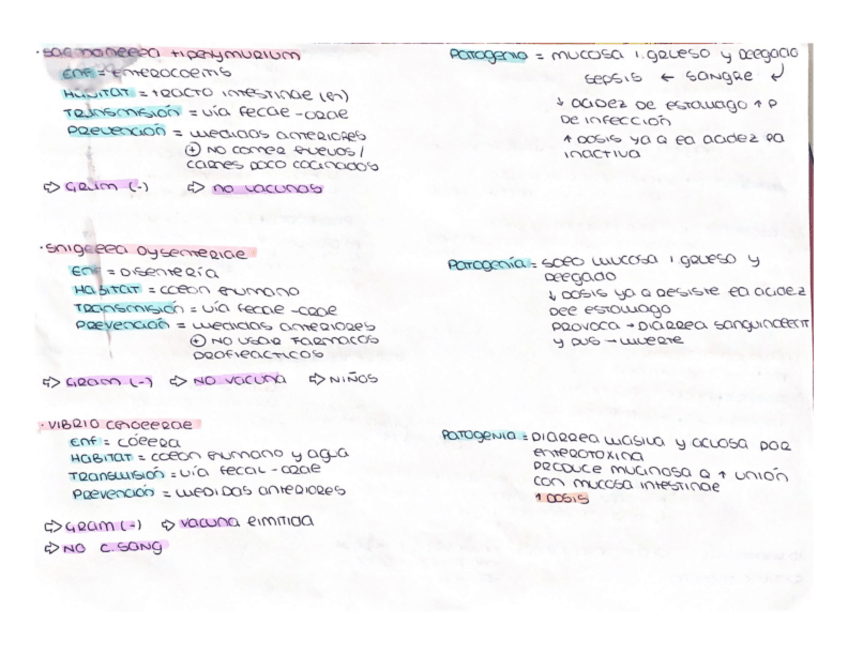 · Salmonella tiphymurium
Enf = Enterocolitis
Hábitat = tracto intestinal (en)
Transmisión = vía fecal-oral
Prevención = medidas anteriores
⊕ no comer huevos /
carnes poco cocinados
⇨ Gram (-) ⇨ no vacunas
Patogenia = mucosa i. grueso y delgado
sepsis ← sangre ↲
↓ acidez de estomago ↑ p
de infección
↑ dosis ya q la acidez la
inactiva
· Shigella dysenteriae
Enf = Disentería
Habitat = colon humano
Transmisión = vía fecal-oral
Prevención = medidas anteriores
⊕ No usar farmacos
profilacticos
⇨ Gram (-) ⇨ No vacuna ⇨ Niños
Patogenía = solo mucosa i grueso y
delgado
↓ dosis ya q resiste la acidez
del estomago
provoca → diarrea
y pus → muerte
· Vibrio cholerae
Enf = cólera
Habitat = colon humano y agua
Transmisión = vía fecal-oral
Prevención = medidas anteriores
⇨ Gram (-) ⇨ vacuna limitida
⇨ NO C. SANG
Patogenia = Diarrea masiva y acuosa por
enterotoxina
Produce mucinosa q ↑ unión
con mucosa intestinal
↑ dosis